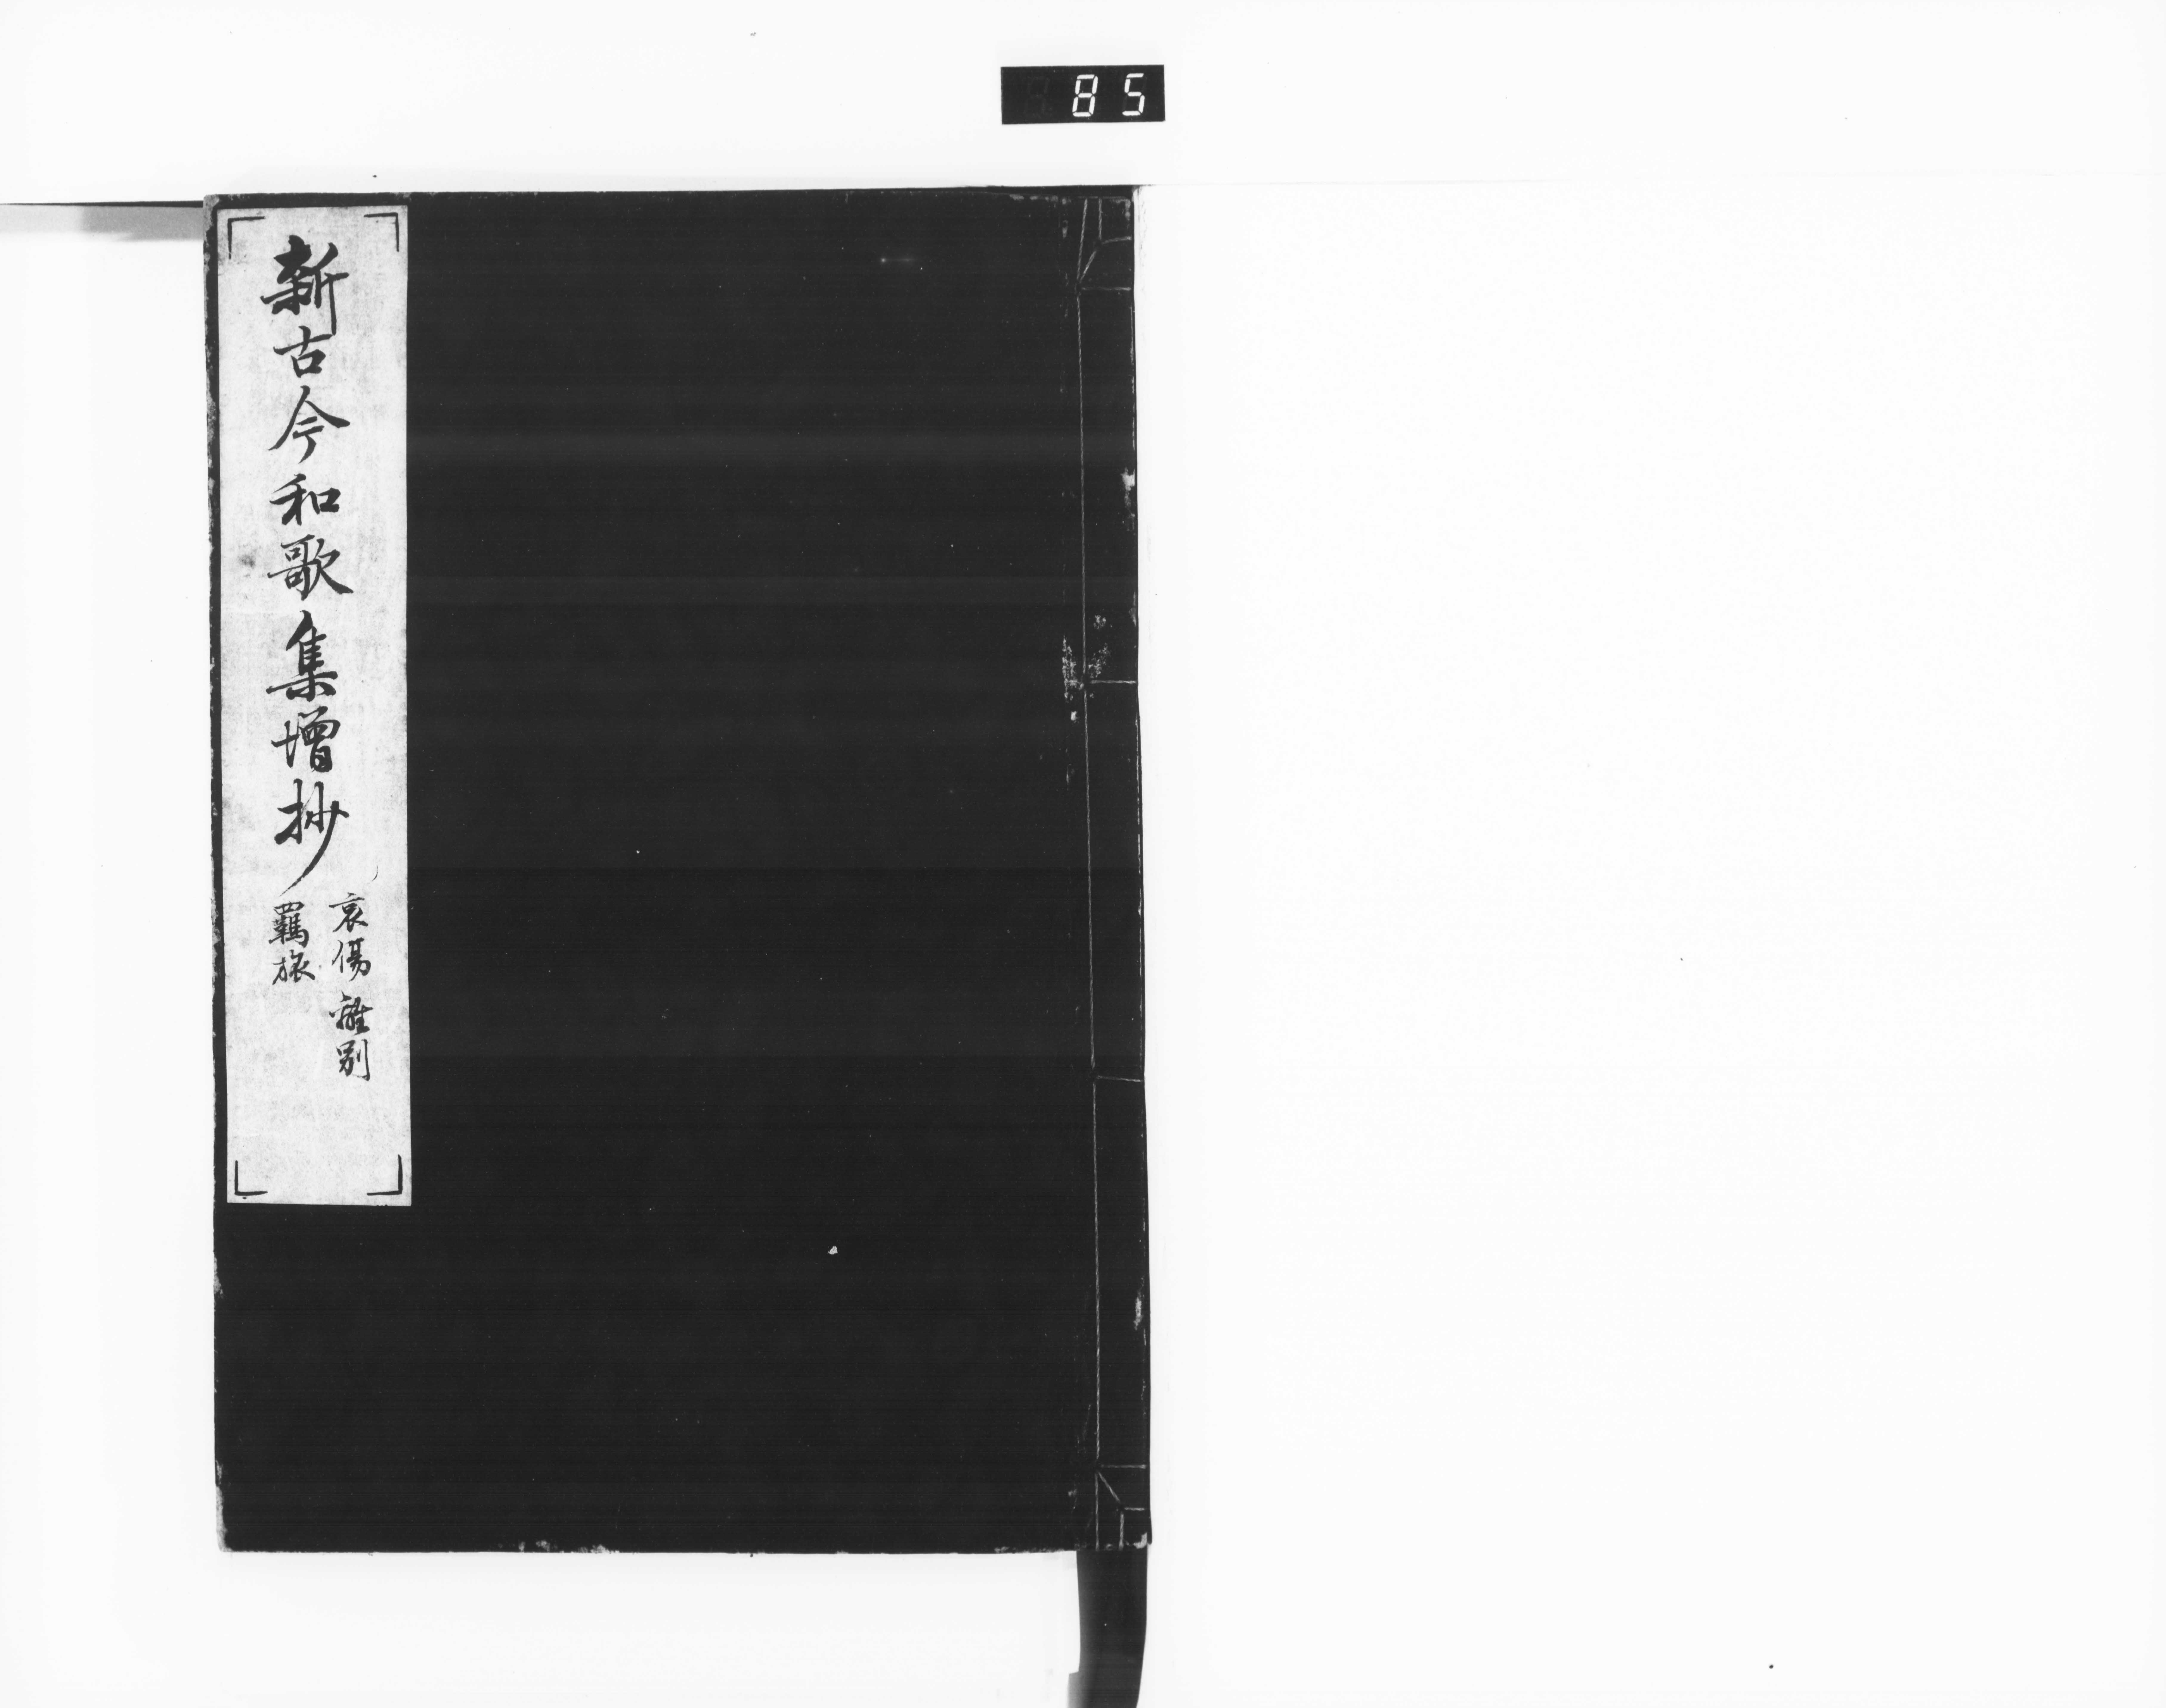 85
新古今和歌集増抄
哀傷 離別
羇旅